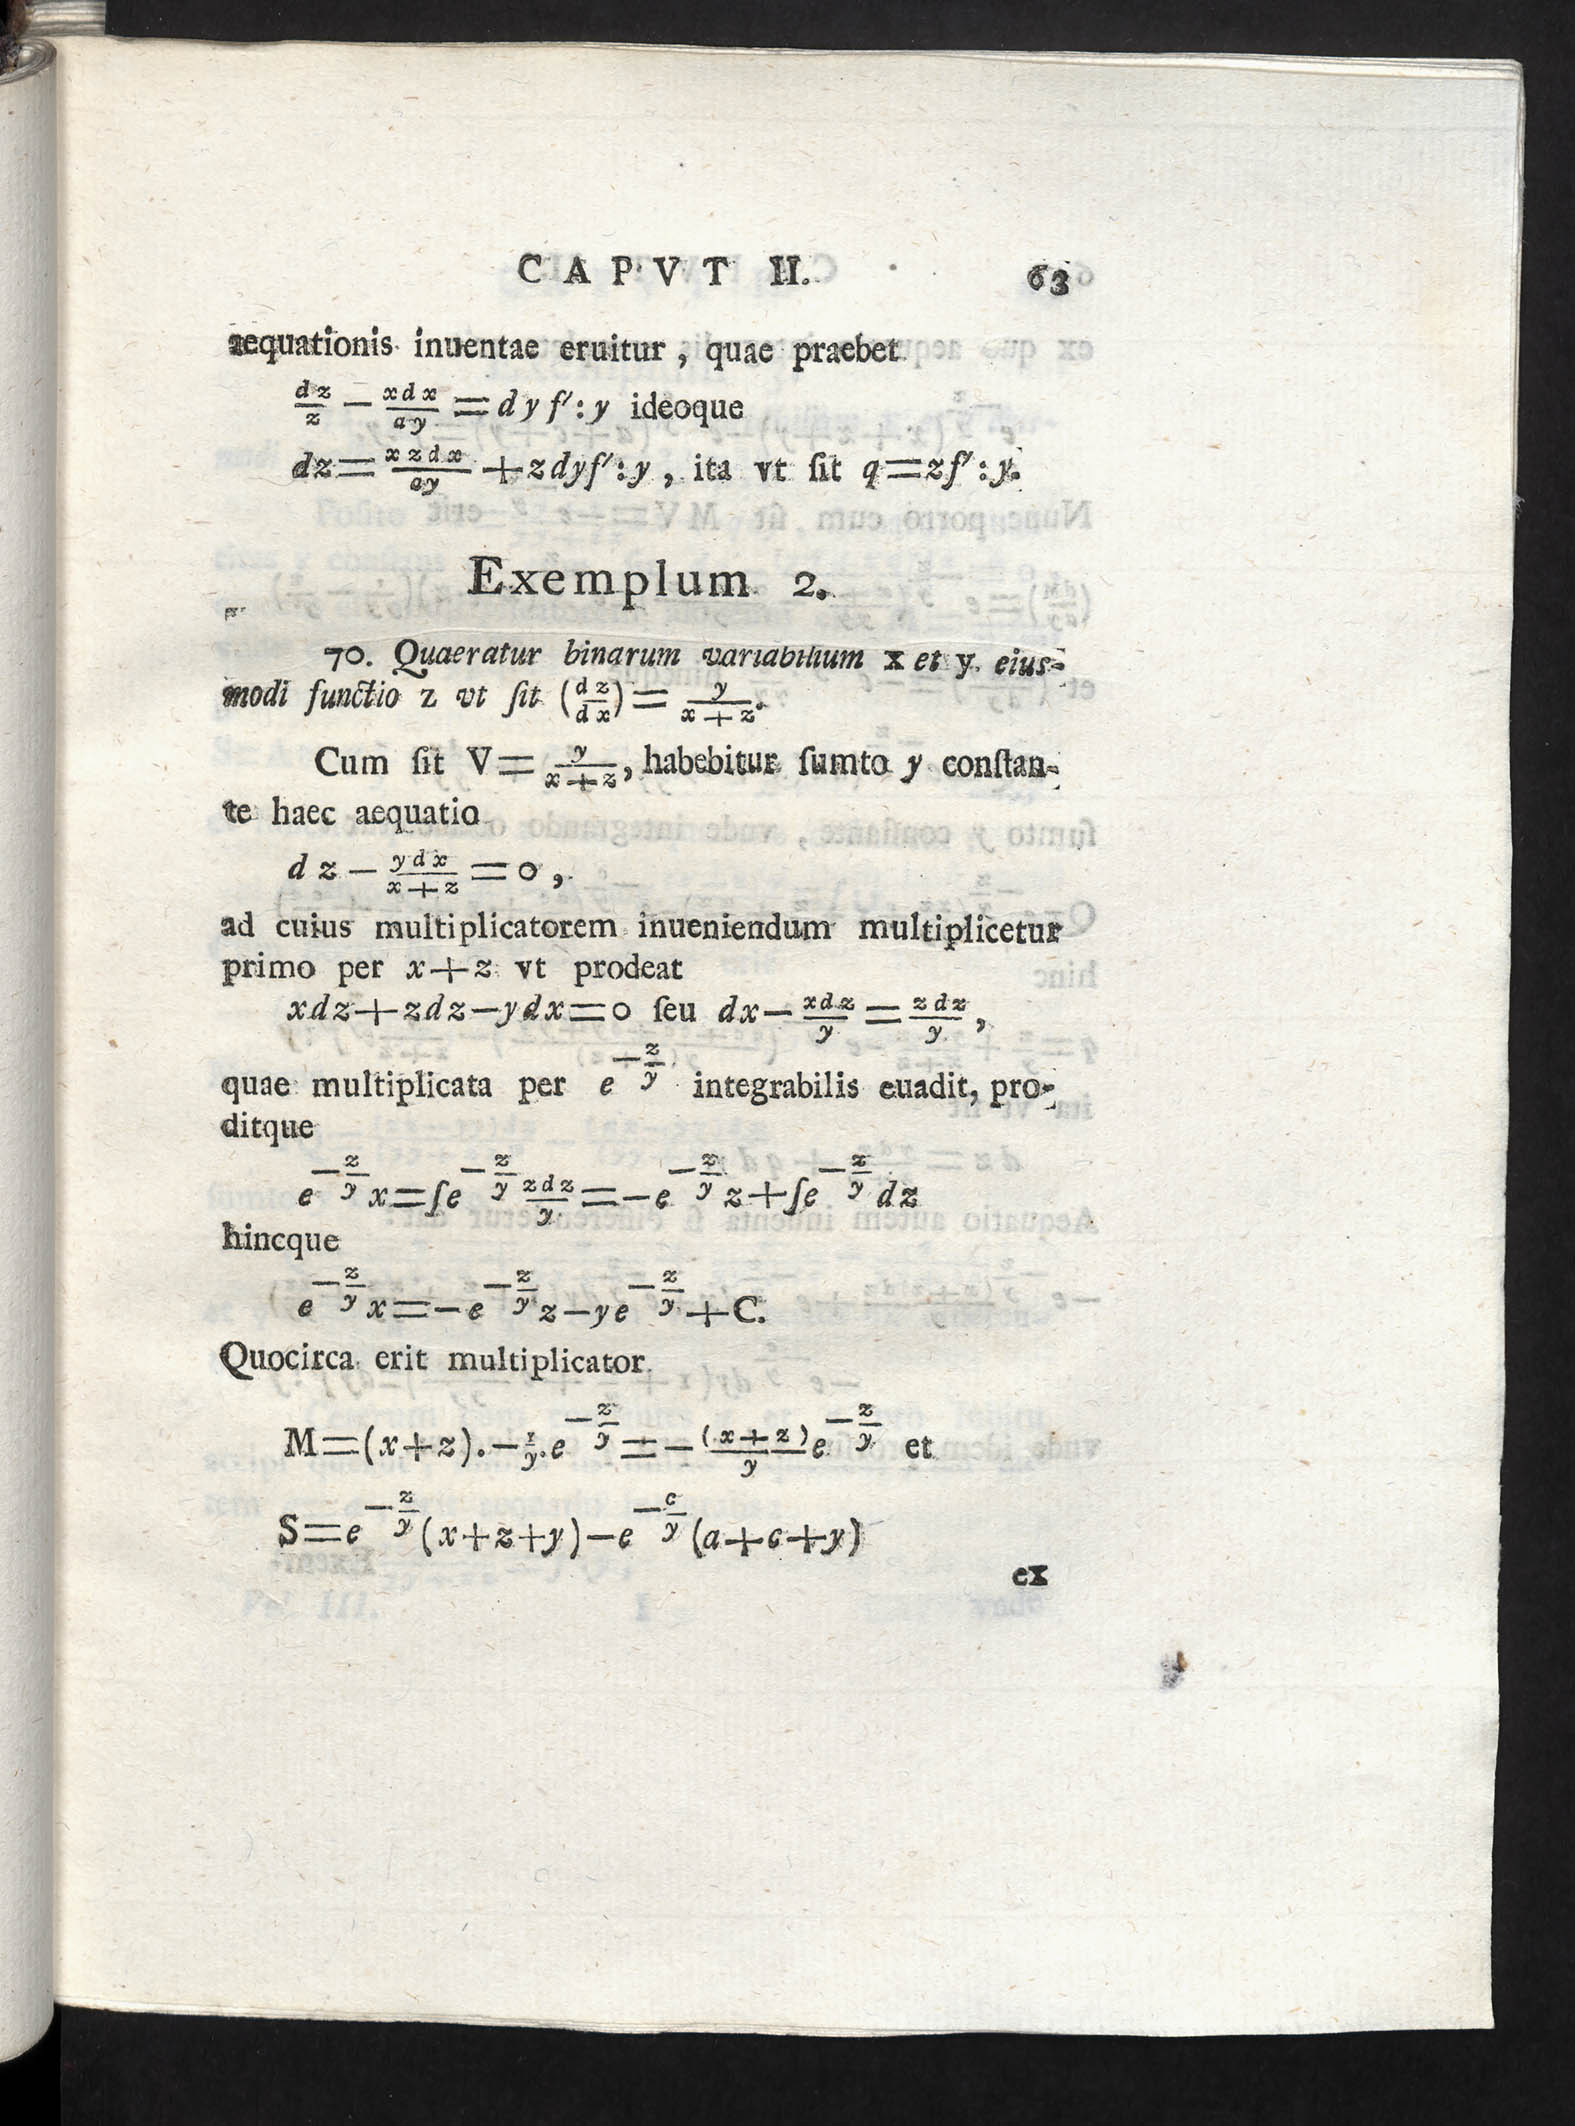 CAPVT II. 63
aequationis inuentae eruitur, quae praebet
dz/z − xdx/ay = dy f′:y ideoque
dz = xzdx/ay + zdyf′:y, ita vt ſit q = zf′:y.
Exemplum 2.
70. Quaeratur binarum variabilium x et y eius-
modi functio z vt ſit (dz/dx) = y/(x+z).
Cum ſit V = y/(x+z), habebitur ſumto y conſtan-
te haec aequatio
dz − ydx/(x+z) = 0,
ad cuius multiplicatorem inueniendum multiplicetur
primo per x+z vt prodeat
xdz+zdz−ydx=0 ſeu dx − xdz/y = zdz/y,
quae multiplicata per e^(−z/y) integrabilis euadit, pro-
ditque
e^(−z/y) x = ∫e^(−z/y) zdz/y = −e^(−z/y) z + ∫e^(−z/y) dz
hincque
e^(−z/y) x = −e^(−z/y) z − ye^(−z/y) + C.
Quocirca erit multiplicator
M = (x+z). − 1/y. e^(−z/y) = − (x+z)/y e^(−z/y) et
S = e^(−z/y) (x+z+y) − e^(−c/y) (a+c+y)
ex